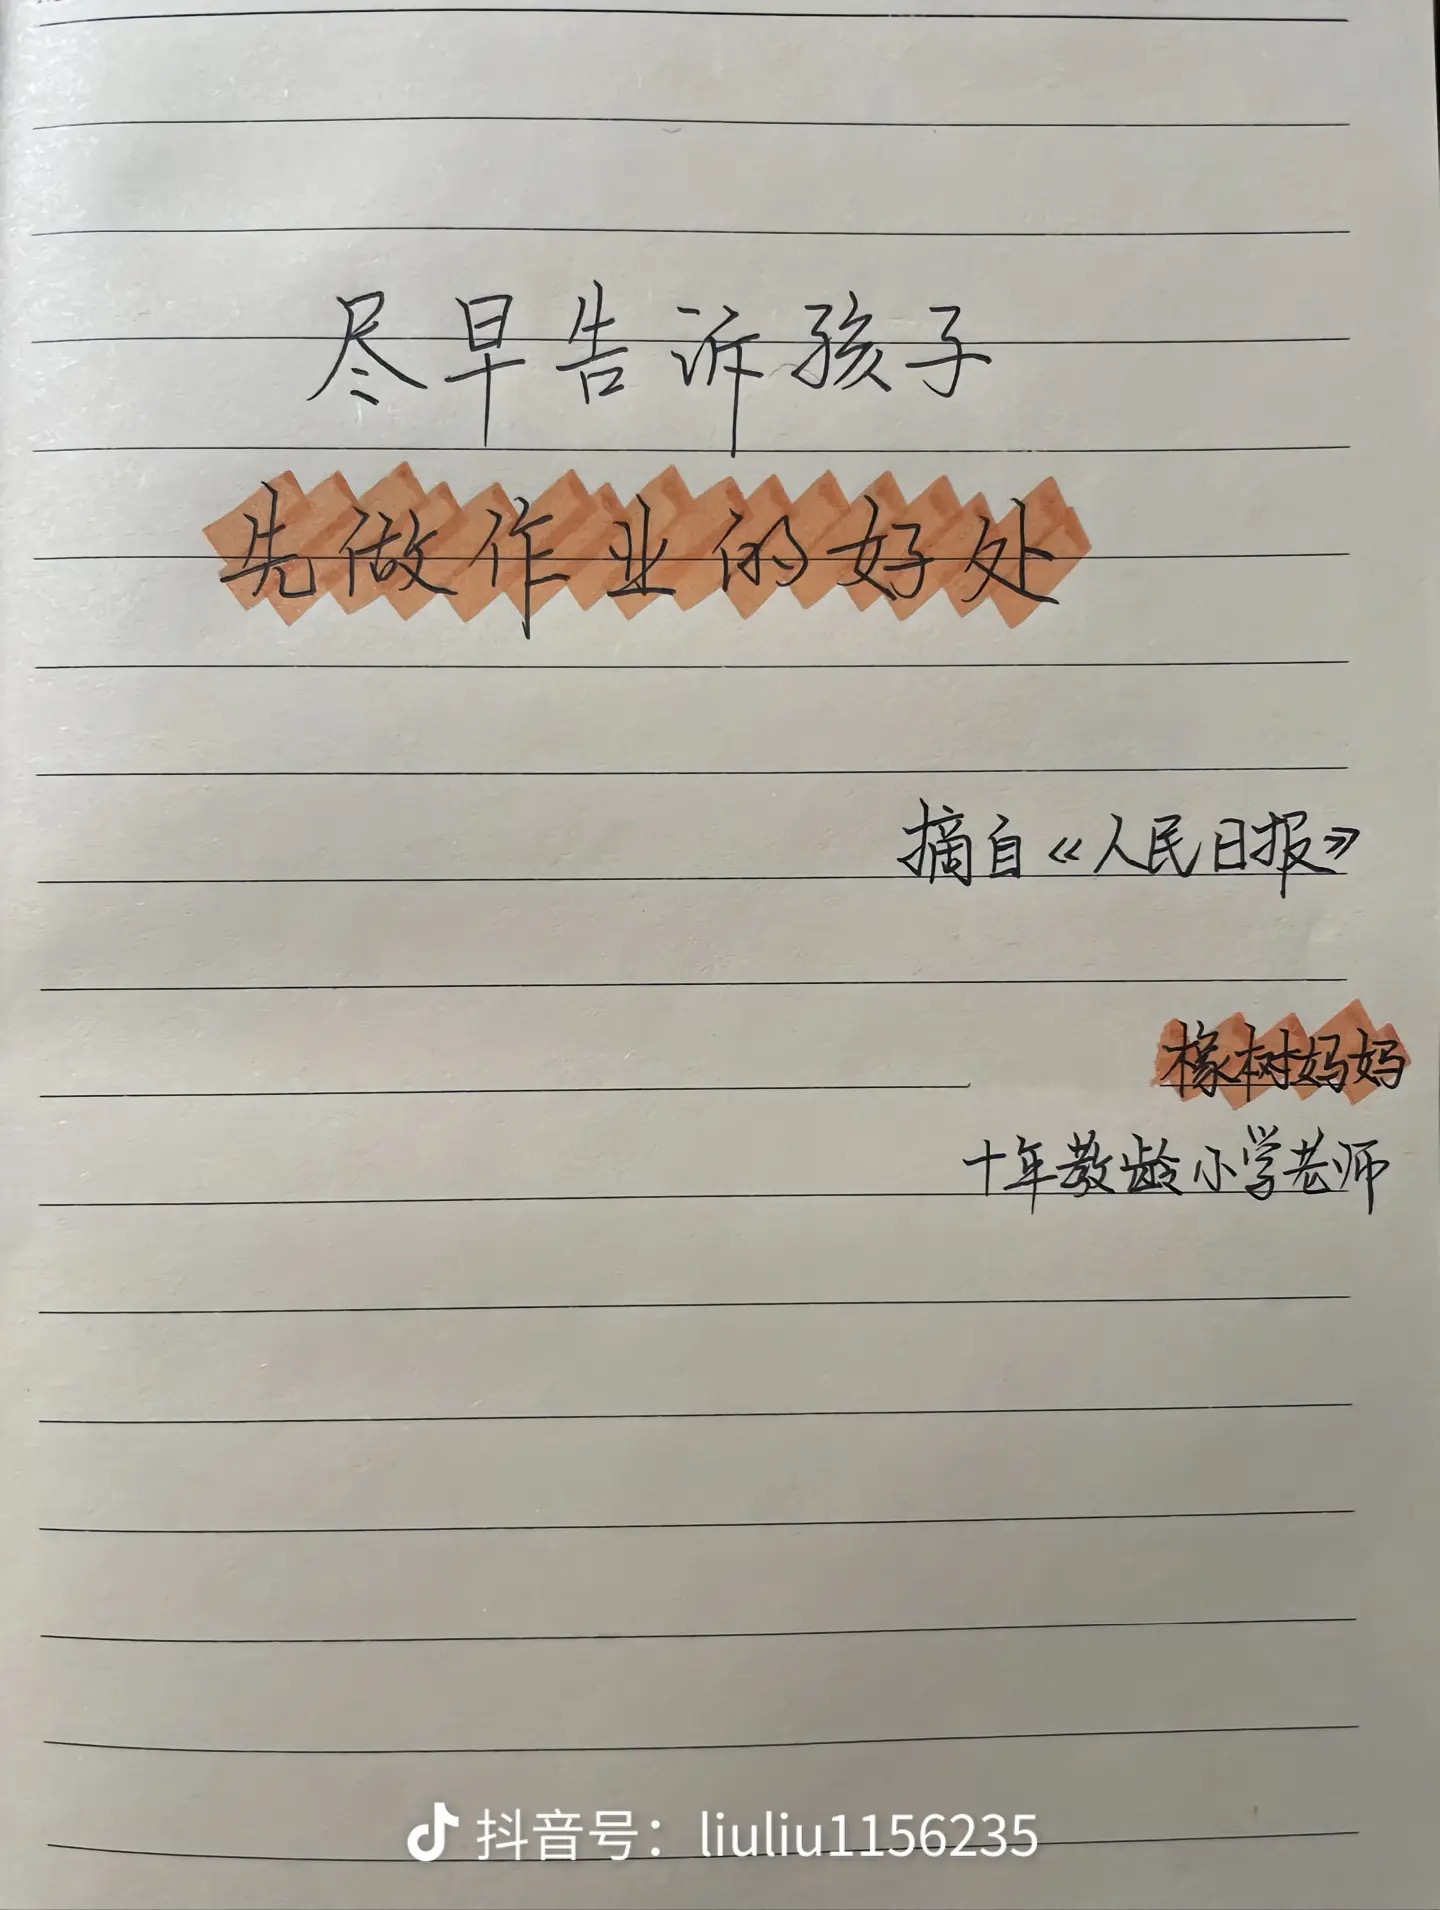 尽早告诉孩子
先做作业的好处
摘自《人民日报》
橡树妈妈
十年教龄小学老师
抖音号：liuliu1156235